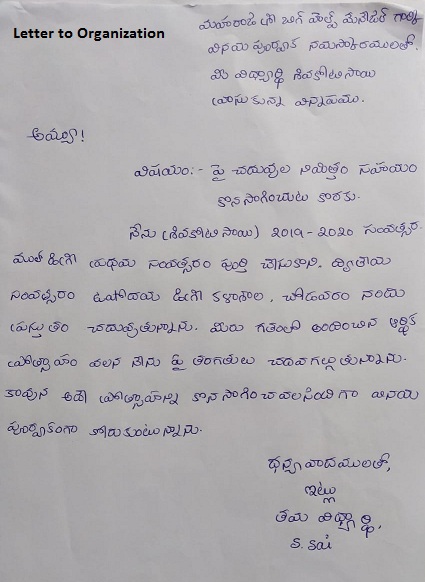 Letter to Organization
మహారాజశ్రీ బిగ్ హెల్ప్ మేనేజర్ గార్కి
వినయ పూర్వక నమస్కారములతో.
మీ విద్యార్థి శివకోటిసాయి
వ్రాసుకున్న విన్నపము.
అయ్యా!
విషయం:- పై చదువుల నిమిత్తం సహాయం
కొనసాగించుట కొరకు.
నేను (శివకోటి సాయి) 2019-2020 సంవత్సర
డిగ్రీ ప్రథమ సంవత్సరం పూర్తి చేసుకొని, ద్వితీయ
సంవత్సరం ఉషోదయ డిగ్రీ కళాశాల, చోడవరం నందు
ప్రస్తుతం చదువుతున్నాను. మీరు గతంలో అందించిన ఆర్థిక
ప్రోత్సాహం వలన నేను పై తరగతులు చదవగల్గుతున్నాను.
కావున అదే ప్రోత్సాహాన్ని కొనసాగించవలసిందిగా వినయ
పూర్వకంగా కోరుకుంటున్నాను.
ధన్యవాదములతో,
ఇట్లు
తమ విద్యార్థి,
S. Sai